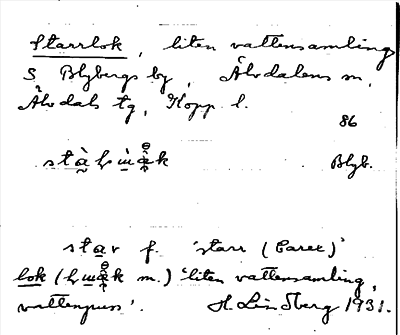 Starrlok, liten vattensamling
S Blybergs by, Älvdalens sn,
Älvdals tg, Kopp. l.
86
Blyb.
star f. 'starr (Carex)'
lok ( m.) 'liten vattensamling,
vattenpuss'. H. Lindberg 1931.